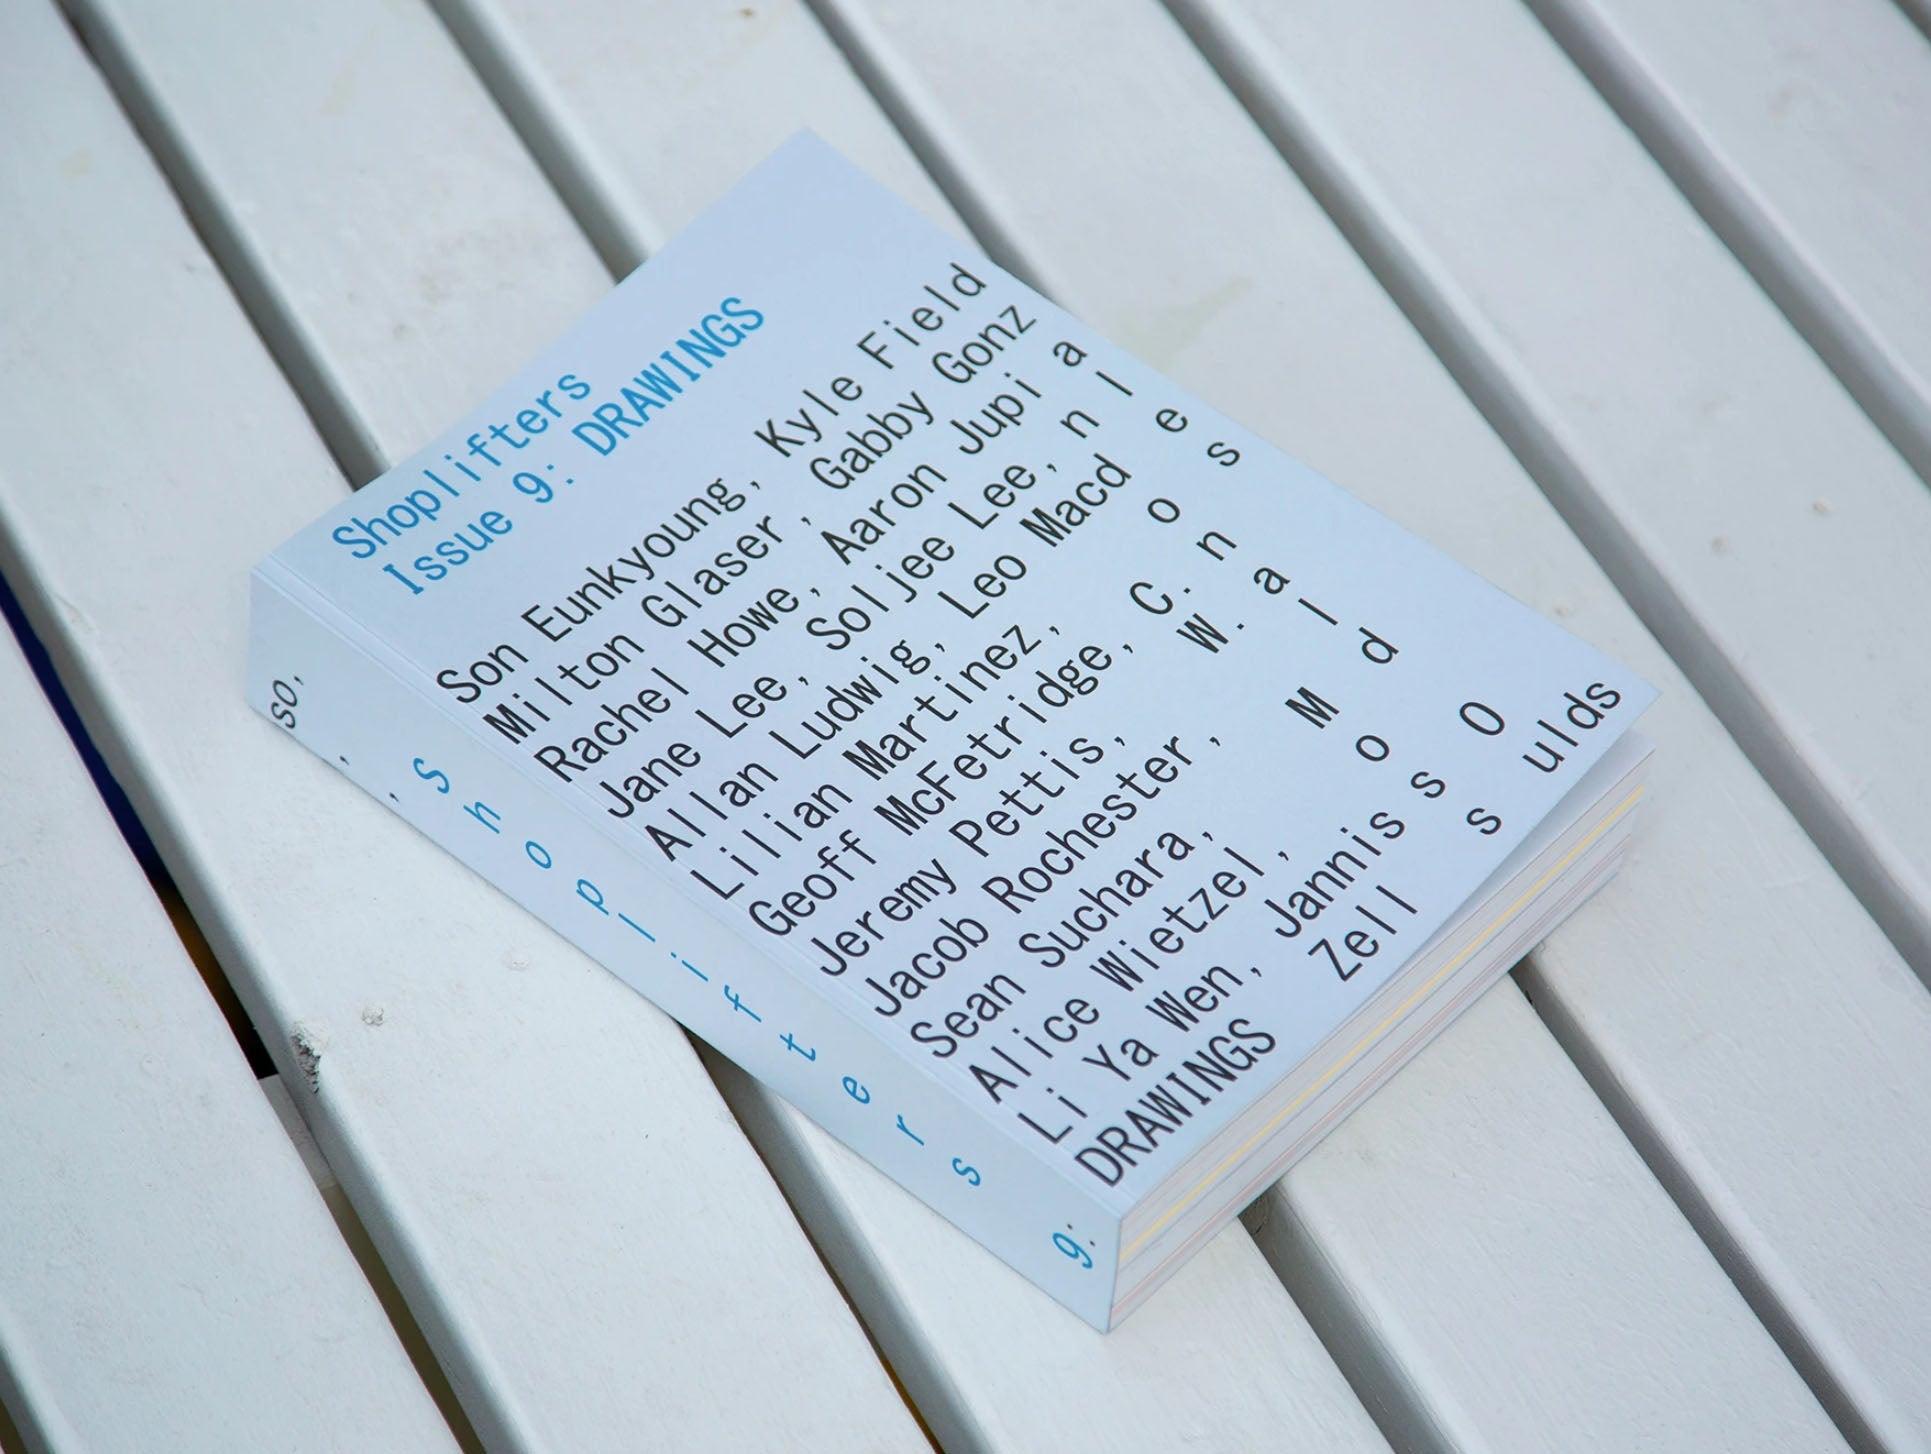 Shoplifters
Issue 9: DRAWINGS
Son Eunkyoung, Kyle Field
Milton Glaser, Gabby Gonz
Rachel Howe, Aaron Jupi a
Jane Lee, Soljee Lee, n l
Allan Ludwig, Leo Macd e
Lilian Martinez, o s
Geoff McFetridge, C. n
Jeremy Pettis, W. a
Jacob Rochester, l
Sean Suchara, M d
Alice Wietzel, o O
Li Ya Wen, Jannis s s ulds
DRAWINGS Zell
so,
Shoplifters
9: